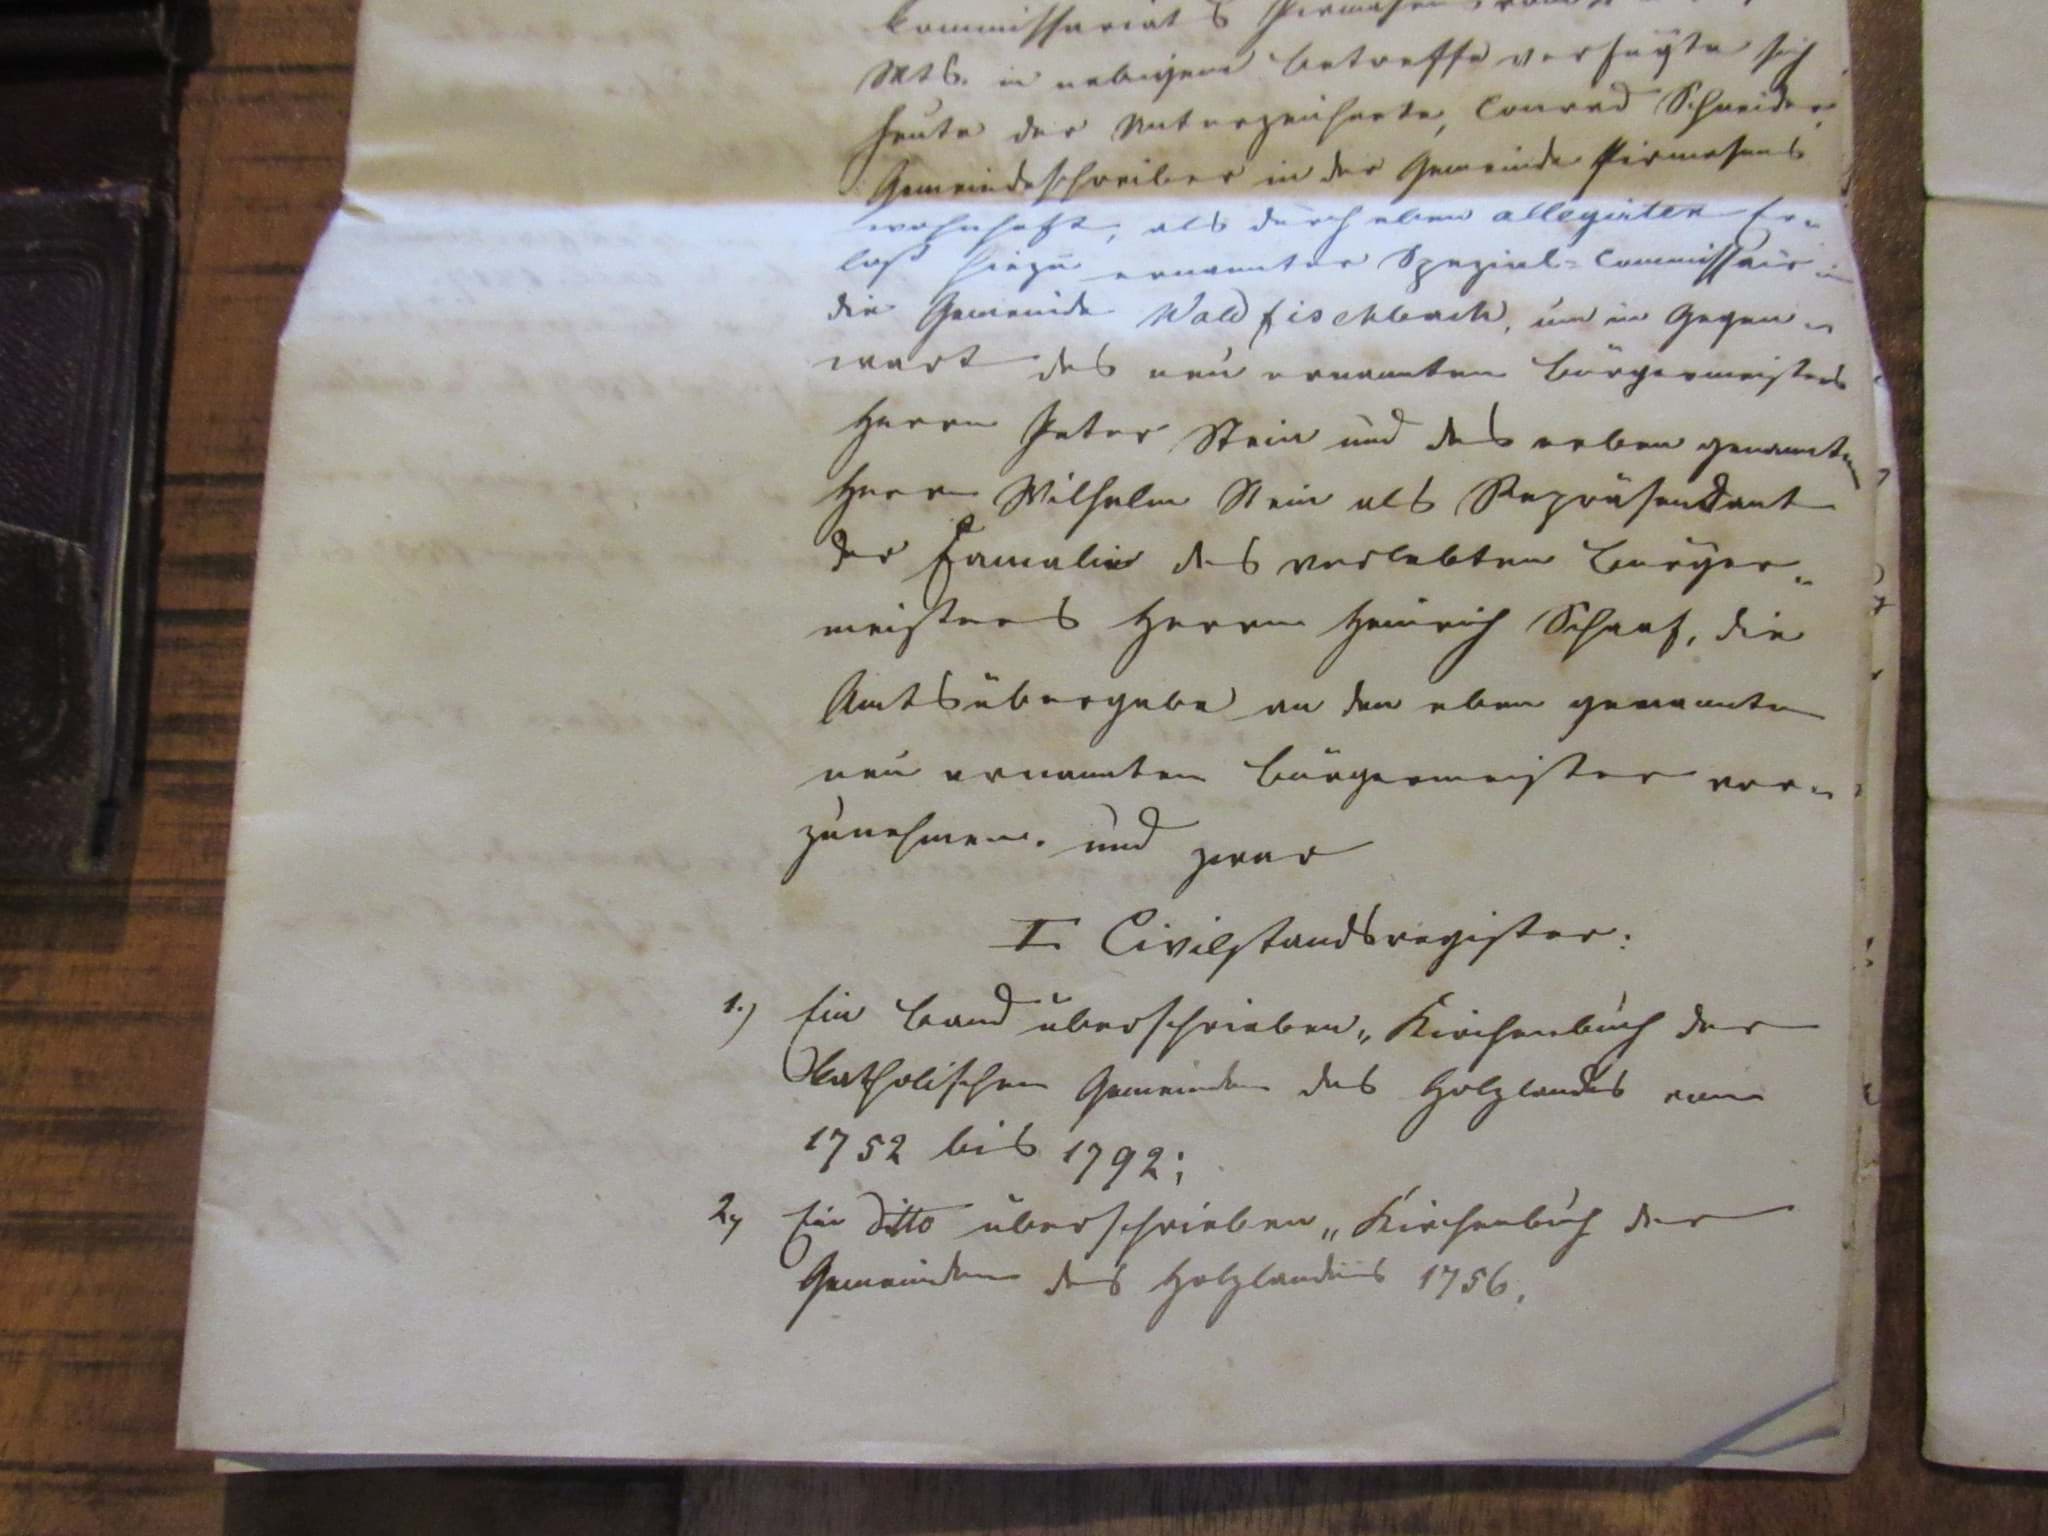 Kommissariats Pirmasens vom
Mts. in nebigem Betreffe verfügte sich
heute der Unterzeichnete, Conrad Schneider,
Gemeindeschreiber in der Gemeinde Pirmasens
wohnhaft, als durch eben allegirten Er-
laß hiezu ernannter Spezial-Commissair in
die Gemeinde Waldfischbach, um in Gegen-
wart des neu ernannten Bürgermeisters
Herrn Peter Stein und des eben genannten
Herrn Wilhelm Stein als Repräsendant
der Famalie des verlebten Bürger-
meisters Herrn Heinrich Schaaf, die
Amtsübergabe an den eben genannten
neu ernannten Bürgermeister vor-
zunehmen. und zwar
I Civilstandsregister:
1.) Ein Band überschrieben „Kirchenbuch der
katholischen Gemeinden des Holzlandes vom
1752 bis 1792;
2, Ein ditto überschrieben „Kirchenbuch der
Gemeinden des Holzlandes 1756.